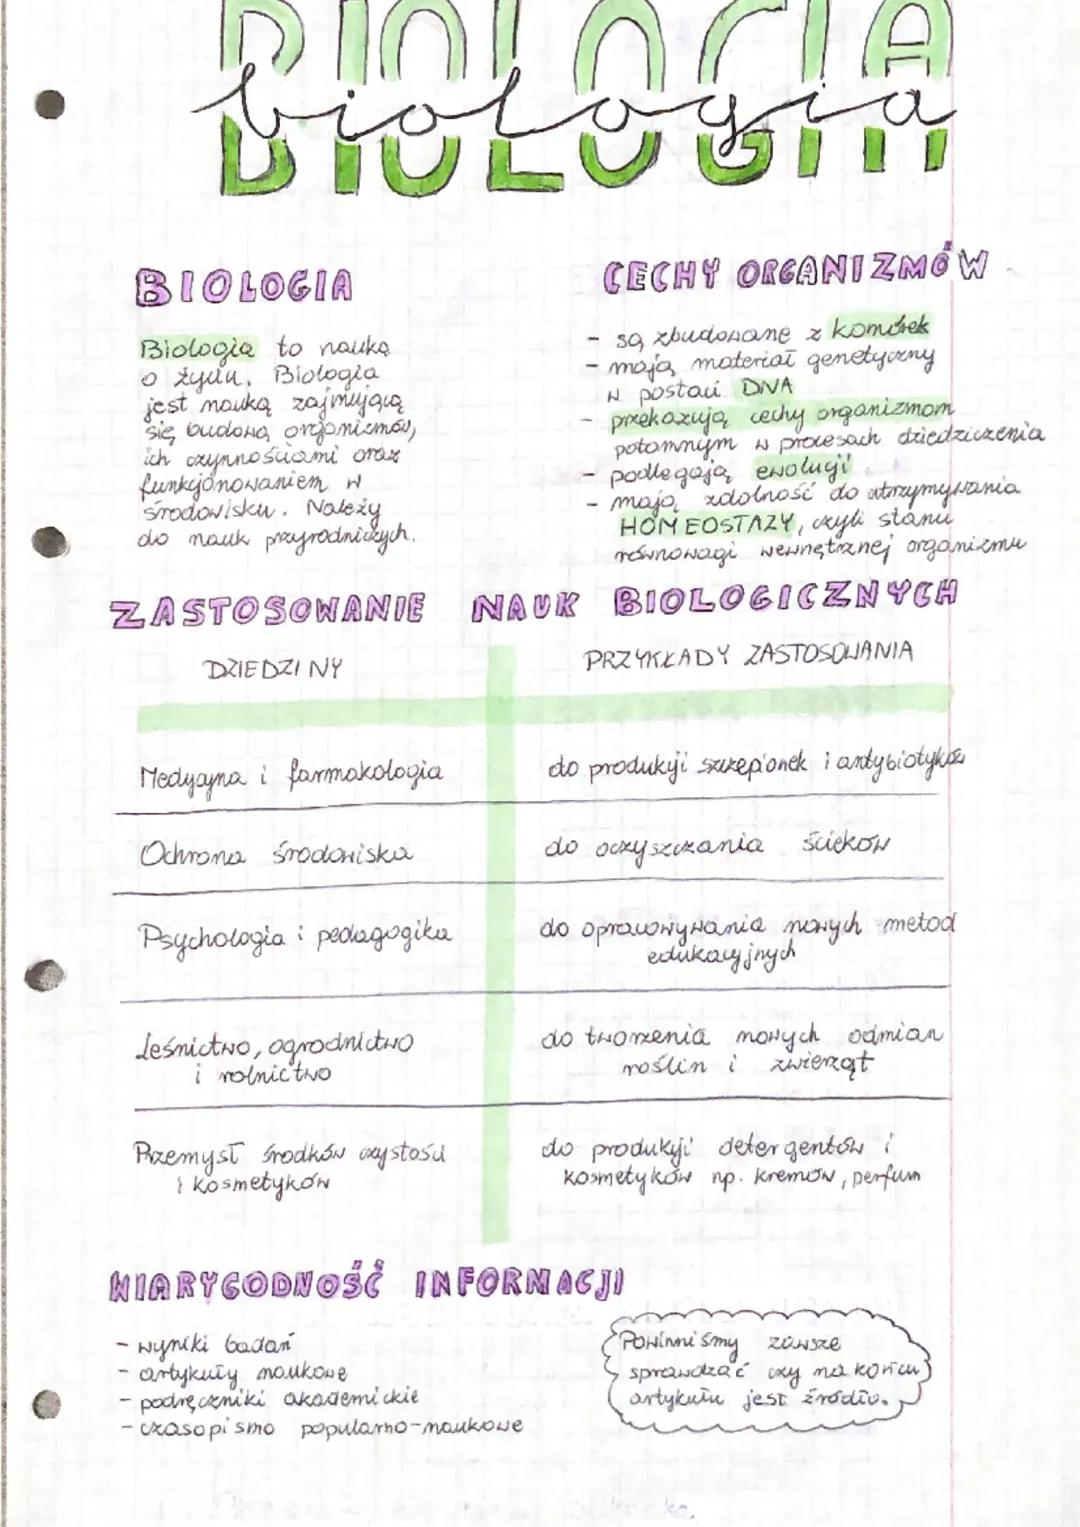 BIOLOGIA
biologia
BIOLOGIA
Biologia to nauka
o życiu. Biologia
jest nauką zajmującą
się budową organizmów,
ich czynnościami oraz
funkcjonowaniem w
środowisku. Należy
do nauk przyrodniczych.
CECHY ORGANIZMÓW
- są zbudowane z komórek
- mają materiał genetyczny
w postaci DNA
- przekazują cechy organizmom
potomnym w procesach dziedziczenia
- podlegają ewolucji
- mają zdolność do utrzymywania
HOMEOSTAZY, czyli stanu
równowagi wewnętrznej organizmu
ZASTOSOWANIE NAUK BIOLOGICZNYCH
DZIEDZINY
PRZYKŁADY ZASTOSOWANIA
Medycyna i farmakologia
do produkcji szczepionek i antybiotyków
Ochrona środowiska
do oczyszczania ścieków
Psychologia i pedagogika
do opracowywania nowych metod
edukacyjnych
Leśnictwo, ogrodnictwo
i rolnictwo
do tworzenia nowych odmian
roślin i zwierząt
Przemysł środków czystości
i kosmetyków
do produkcji detergentów i
kosmetyków np. kremów, perfum
WIARYGODNOŚĆ INFORMACJI
- wyniki badań
- artykuły naukowe
- podręczniki akademickie
- czasopismo popularno-naukowe
Powinniśmy zawsze
sprawdzać czy na końcu
artykułu jest źródło.